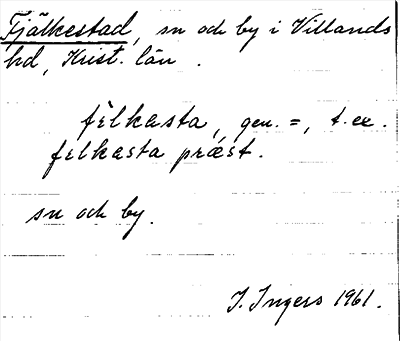 Fjälkestad, sn och by i Villands
hd, Krist. län.
fèlkasta, gen. =, t. ex.
felkasta præst.
sn och by.
I. Ingers 1961.